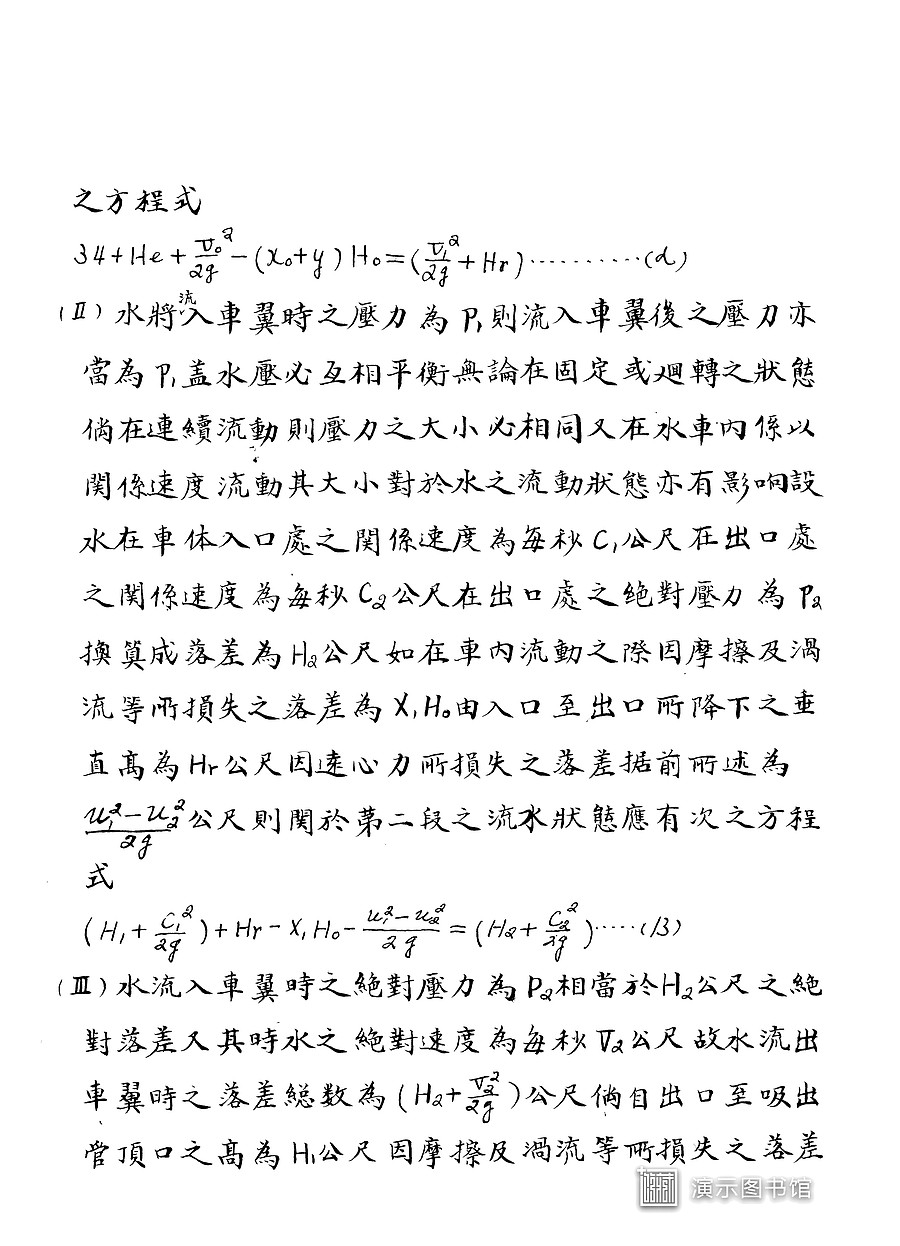 之方程式
34+He+V₀²/2g−(x₀+y)H₀=(V₁²/2g+Hr)··········(α)
(Ⅱ)水將流入車翼時之壓力為P₁則流入車翼後之壓力亦
當為P₁盖水壓必互相平衡無論在固定或廻轉之狀態
倘在連續流動則壓力之大小必相同又在水車內係以
関係速度流動其大小對於水之流動狀態亦有影响設
水在車体入口處之関係速度為每秒C₁公尺在出口處
之関係速度為每秒C₂公尺在出口處之绝對壓力為P₂
換算成落差為H₂公尺如在車內流動之際因摩擦及渦
流等所損失之落差為X₁H₀由入口至出口所降下之垂
直高為Hr公尺因遠心力所損失之落差据前所述為
u₁²−u₂²/2g公尺則関於第二段之流水狀態應有次之方程
式
(H₁+C₁²/2g)+Hr−X₁H₀−u₁²−u₂²/2g=(H₂+C₂²/2g)·····(β)
(Ⅲ)水流入車翼時之絕對壓力為P₂相當於H₂公尺之絕
對落差又其時水之絕對速度為每秒V₂公尺故水流出
車翼時之落差総数為(H₂+V₂²/2g)公尺倘自出口至吸出
管頂口之高為H₁公尺因摩擦及渦流等所損失之落差
演示图书馆